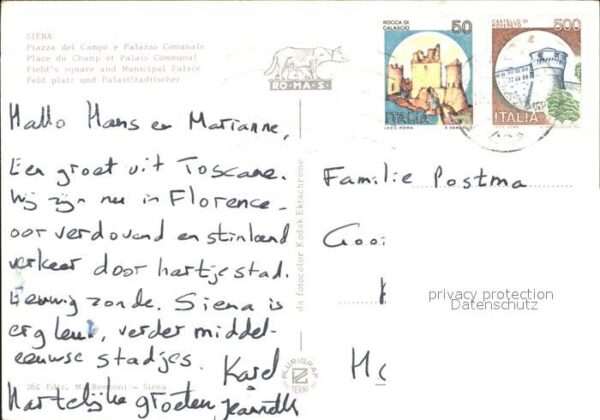 SIENA
Piazza del Campo e Palazzo Comunale
Place du Champ et Palais Communal
Field's square and Municipal Palace
Feld platz und PalastStadtischer
RO-MA-S
ROCCA DI CALASCIO
50
ITALIA
CASTELLO DI ROVERETO
500
ITALIA
Hallo Hans en Marianne,
Een groet uit Toscane.
Wij zijn nu in Florence -
oorverdovend en stinkend
verkeer door hartje stad.
Eeuwig zonde. Siena is
erg leuk, verder middel-
eeuwse stadjes. Karel
Hartelijke groeten, Jeannette
da fotocolor Kodak Ektachrome
Familie Postma
Gooi
privacy protection
Datenschutz
PLURIGRAF
TERNI
264 Ediz. - Siena